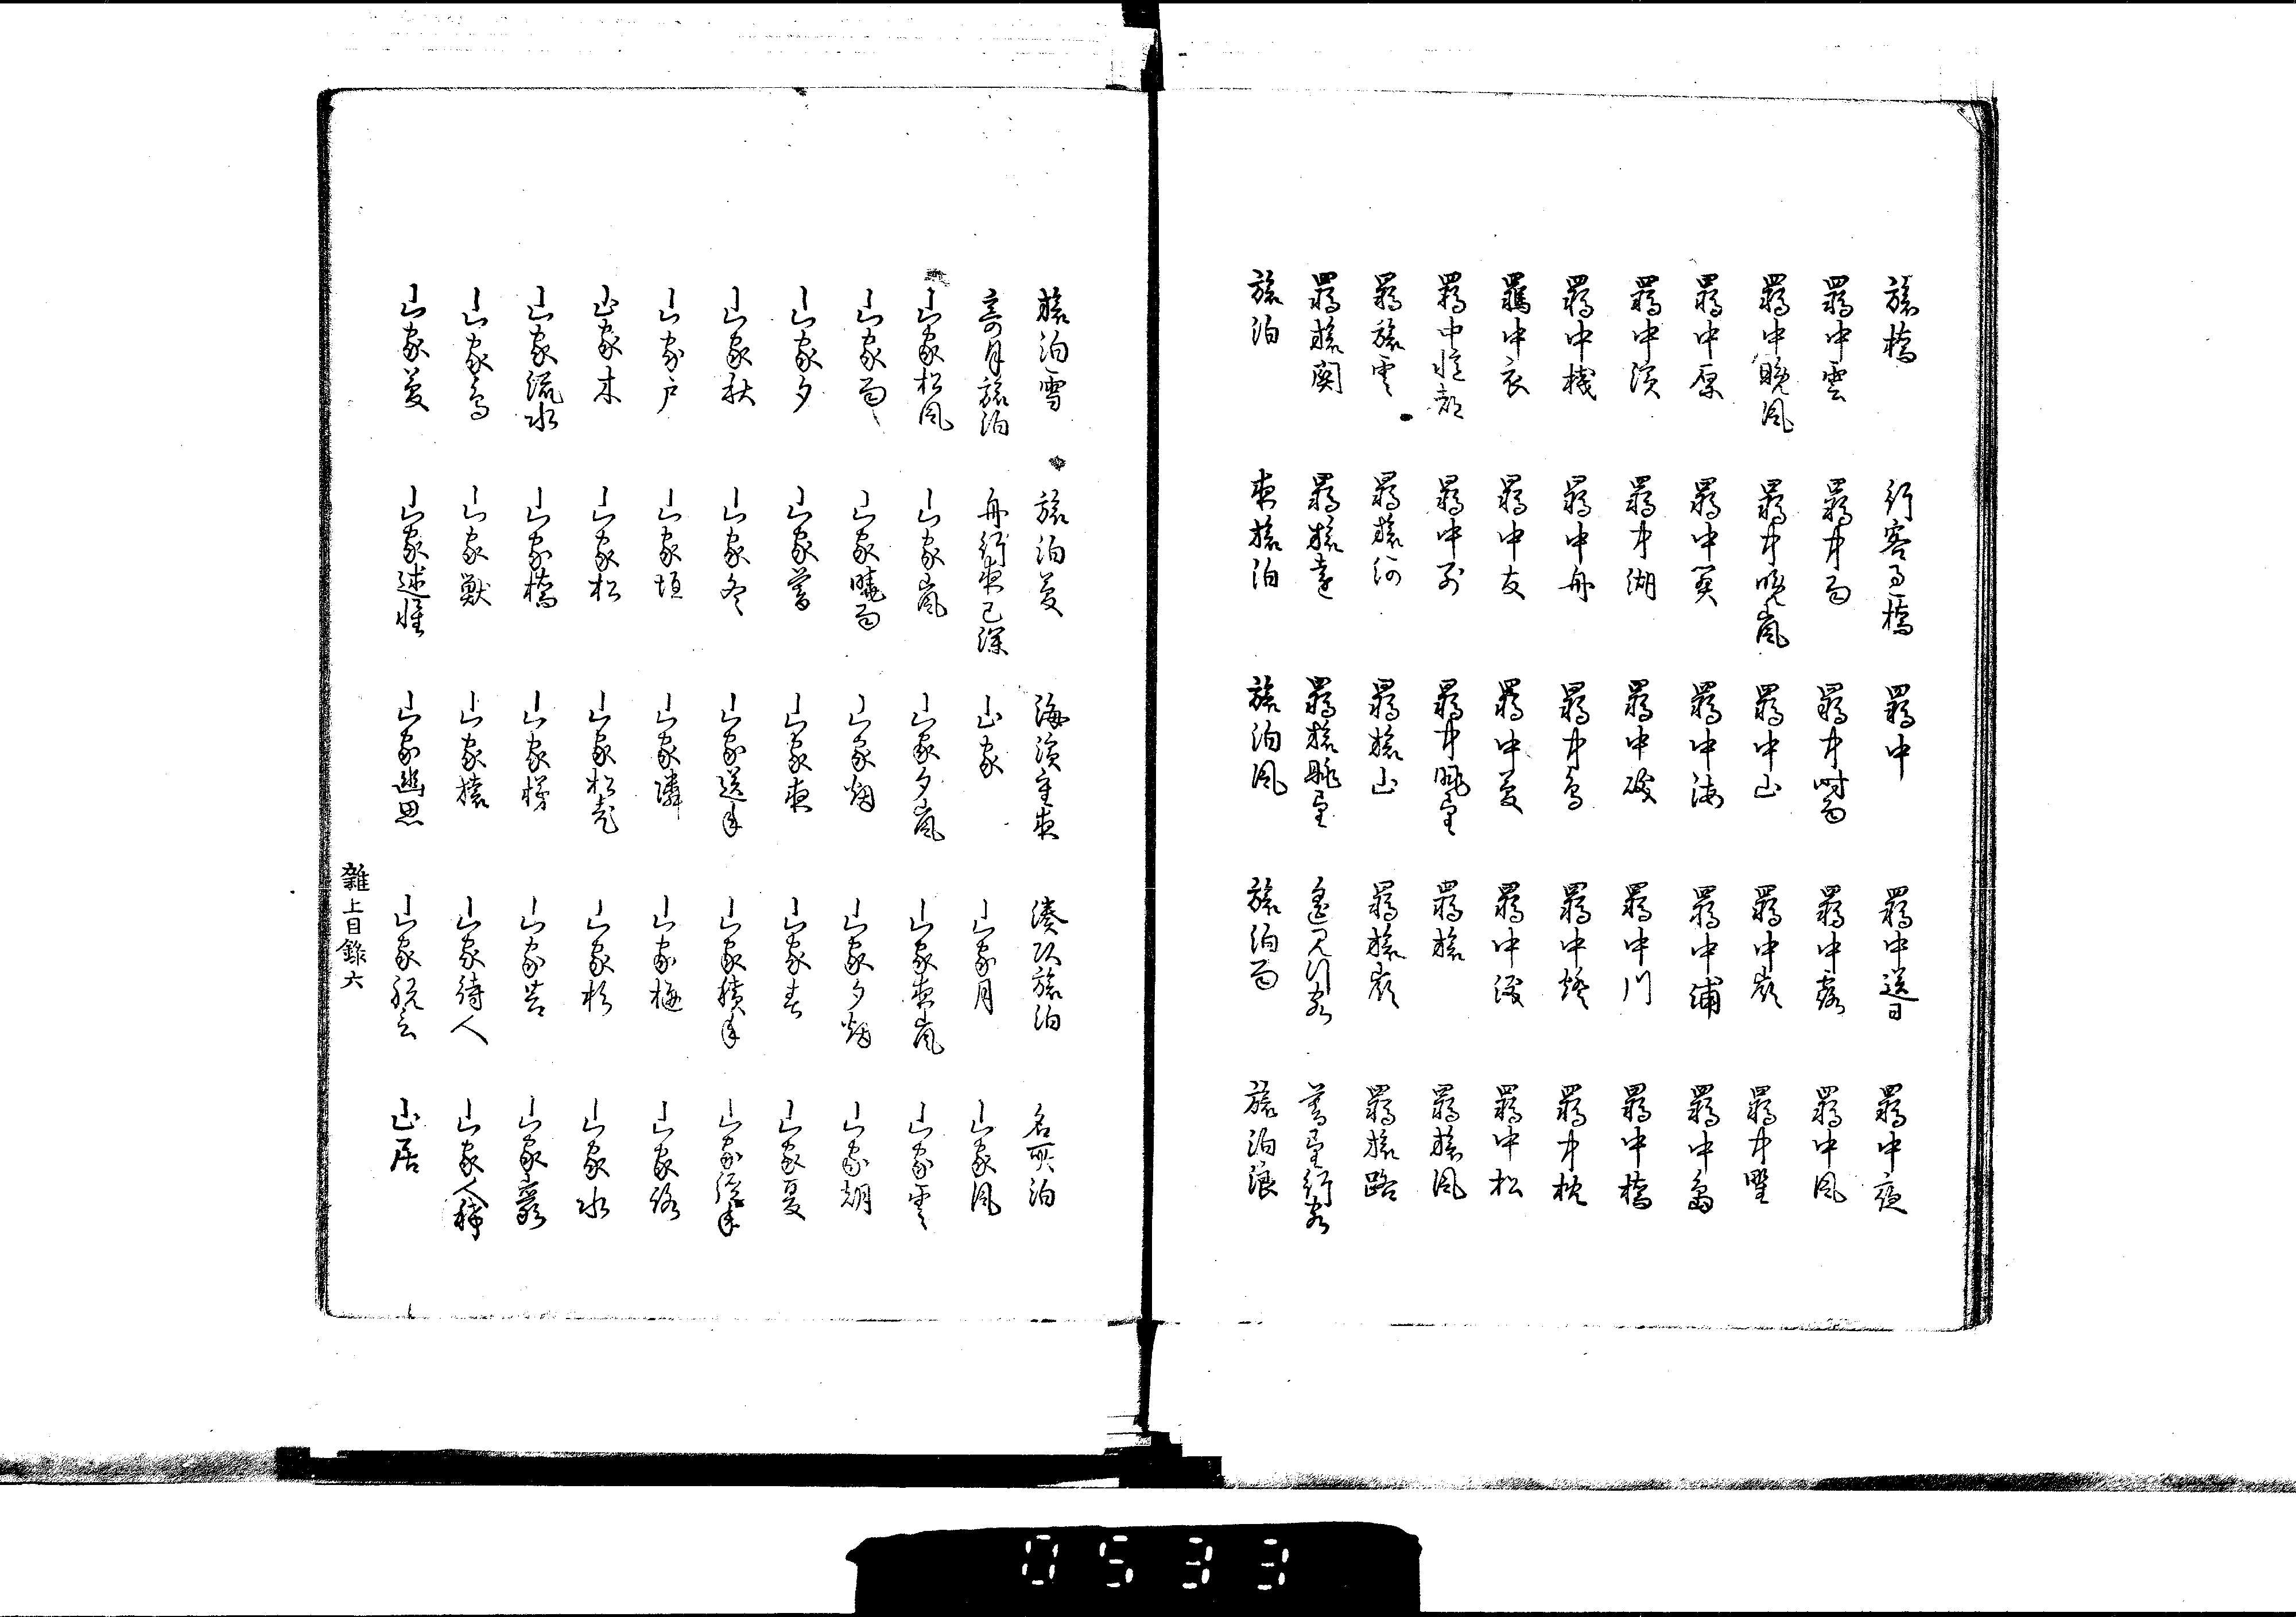 旅橋 行客過橋 羇中 羇中送日 羇中夜
羇中雲 羇中雨 羇中時雨 羇中露 羇中風
羇中晩風 羇中晩嵐 羇中山 羇中嶺 羇中野
羇中原 羇中関 羇中海 羇中浦 羇中島
羇中浜 羇中湖 羇中磯 羇中川 羇中橋
羇中桟 羇中舟 羇中鳥 羇中燈 羇中枕
羈中衣 羇中友 羇中夢 羇中涙 羇中松
羇中憶都 羇中別 羇中眺望 羇旅 羇旅風
羇旅雲 羇旅河 羇旅山 羇旅嶺 羇旅路
羇旅関 羇旅遠 羇旅眺望 遥見行客 暮望行客
旅泊 夜旅泊 旅泊風 旅泊雨 旅泊浪
旅泊雪 旅泊夢 海濱重夜 湊頭旅泊 名所泊
寄月旅泊 舟行夜已深 山家 山家月 山家風
山家松風 山家嵐 山家夕嵐 山家夜嵐 山家雲
山家雨 山家曉雨 山家烟 山家夕烟 山家朝
山家夕 山家暮 山家夜 山家春 山家夏
山家秋 山家冬 山家送年 山家積年 山家経年
山家戸 山家垣 山家隣 山家梅 山家路
山家木 山家松 山家松老 山家杉 山家水
山家流水 山家橋 山家梯 山家苔 山家霧
山家鳥 山家獣 山家猿 山家待人 山家人稀
山家夢 山家述懐 山家幽思 山家祝言 山居
雜上目錄六
0533